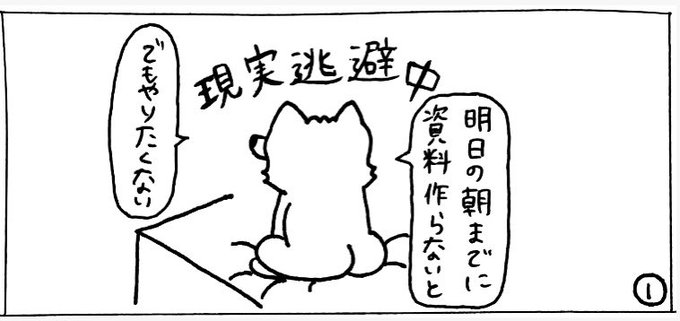 現実逃避中
明日の朝までに
資料作らないと
でもやりたくない
1